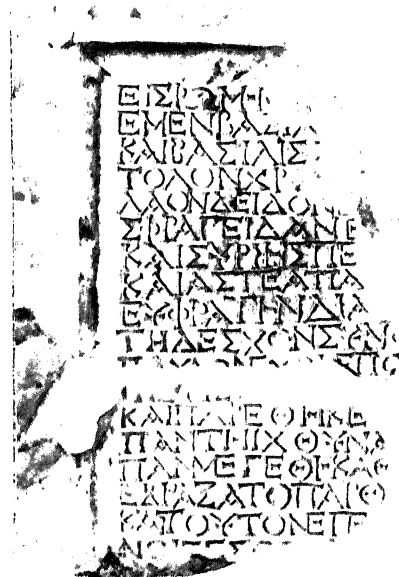 ΕΙΣΡΩΜΗ
ΕΜΕΝΒΑΣΙΛ
ΚΑΙΒΑΣΙΛΙΣ
ΤΟΛΟΝΧΡ
ΛΑΟΝΔΕΙΔΟΝ
ΣΦΡΑΓΕΙΔΑΝΕ
ΚΑΙΣΥΡΙΗΣΠΕ
ΚΑΙΑΣΤΕΑΠΑ
ΕΥΦΡΑΤΗΝΔΙΑ
ΤΗΔΕΣΧΟΝΣΥΝΟ
ΚΑΙΠΑΡΕΘΗΚΕ
ΠΑΝΤΗΙΧΘΥΝΑ
ΠΑΝΜΕΓΕΘΗΚΑΘ
ΕΔΡΑΞΑΤΟΠΑΡΘ
ΚΑΙΤΟΥΤΟΝΕΠΕ